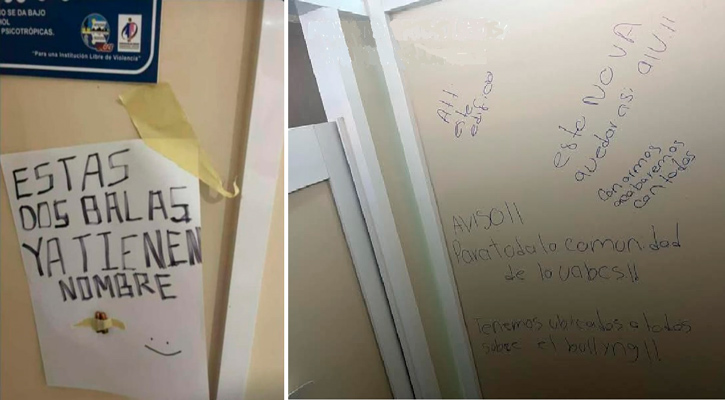 NO SE DA BAJO
PSICOTRÓPICAS.
"Para una Institución Libre de Violencia"
ESTAS
DOS BALAS
YA TIENEN
NOMBRE
este
edificio
este NO VA
quedar asi
Con armas
acabaremos
con todos
AVISO!!
Para toda la comunidad
de la uabcs!!
Tenemos ubicados a todos
sobre el bullyng!!